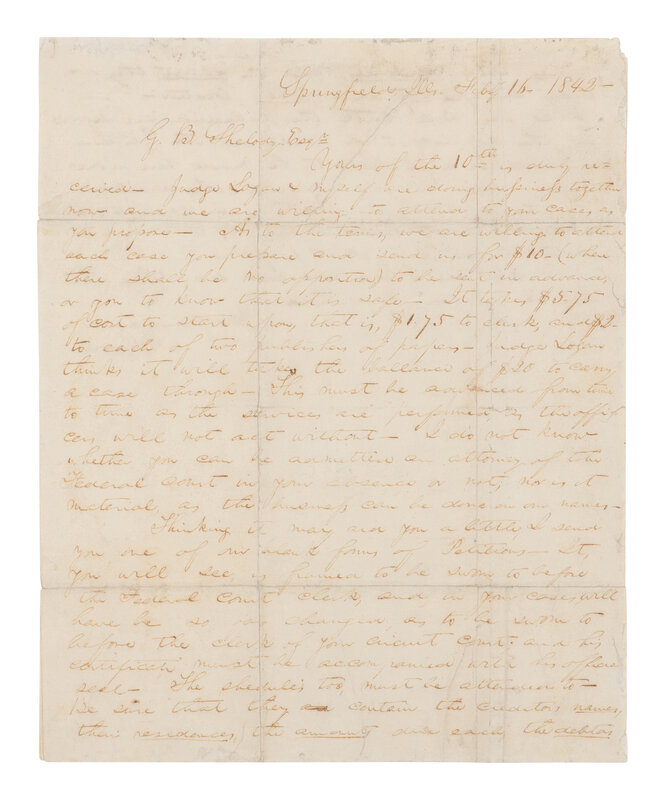 Springfield, Ills. Feby 16- 1842-
G. B. Sheledy, Esqr.
Yours of the 10th is duly re-
ceived- Judge Logan & myself are doing business together
now and we are willing to attend to your cases as
you propose- As to the terms, we are willing to attend
each case you prepare and send us for $10- (when
there shall be no opposition) to be sent in advance,
or you to know that it is safe- It takes $5-75
of cost to start upon, that is, $1.75 to clerk, and $2-
to each of two publishers of papers- Judge Logan
thinks it will take the ballance of $20 to carry
a case through- This must be advanced from time
to time as the services are performed, as the offi-
cers will not act without- I do not know
whether you can be admitted an attorney of the
Federal court in your absence or not; nor is it
material, as the business can be done in our names-
Thinking it may aid you a little, I send
you one of our blank forms of Petitions- It,
you will see, is framed to be sworn to before
the Federal Court clerk, and, in your cases, will
have be so far changed, as to be sworn to
before the clerk of your circuit court; and his
certificate must be accompanied with his official
seal- The schedules too, must be attended to-
Be sure that they contain the creditors names,
their residences, the amounts due each, the debtors